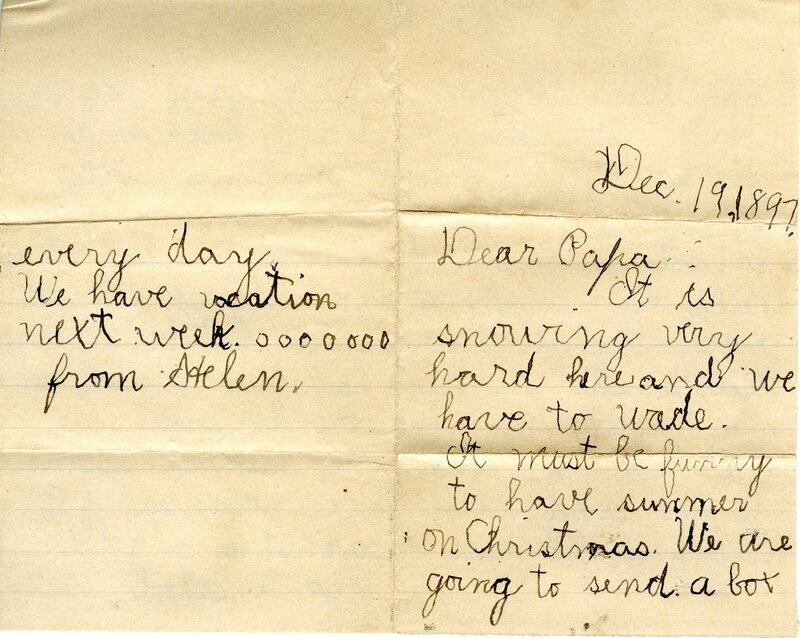 Dec. 19, 1897
Dear Papa.
It is
snowing very
hard here and we
have to wade.
It must be funny
to have summer
on Christmas. We are
going to send a box
every day.
We have vacation
next week. o o o o o o o
from Helen.